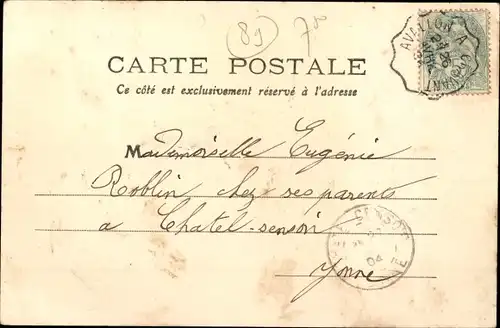 89
CARTE POSTALE
Ce côté est exclusivement réservé à l'adresse
AVALLON A
Mademoiselle Eugénie
Roblin chez ses parents
a Chatel-censoir
Yonne
04